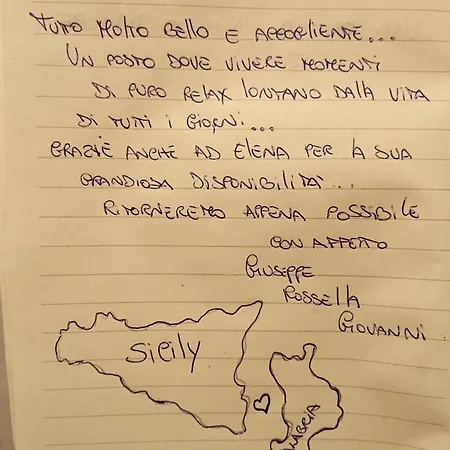 TUTTO MOLTO BELLO E ACCOGLIENTE...
UN POSTO DOVE VIVERE MOMENTI
DI PURO RELAX LONTANO DALLA VITA
DI TUTTI I GIORNI...
GRAZIE ANCHE AD ELENA PER LA SUA
GRANDIOSA DISPONIBILITÀ...
RITORNEREMO APPENA POSSIBILE
CON AFFETTO
GIUSEPPE
ROSSELLA
GIOVANNI
Sicily
CALABRIA